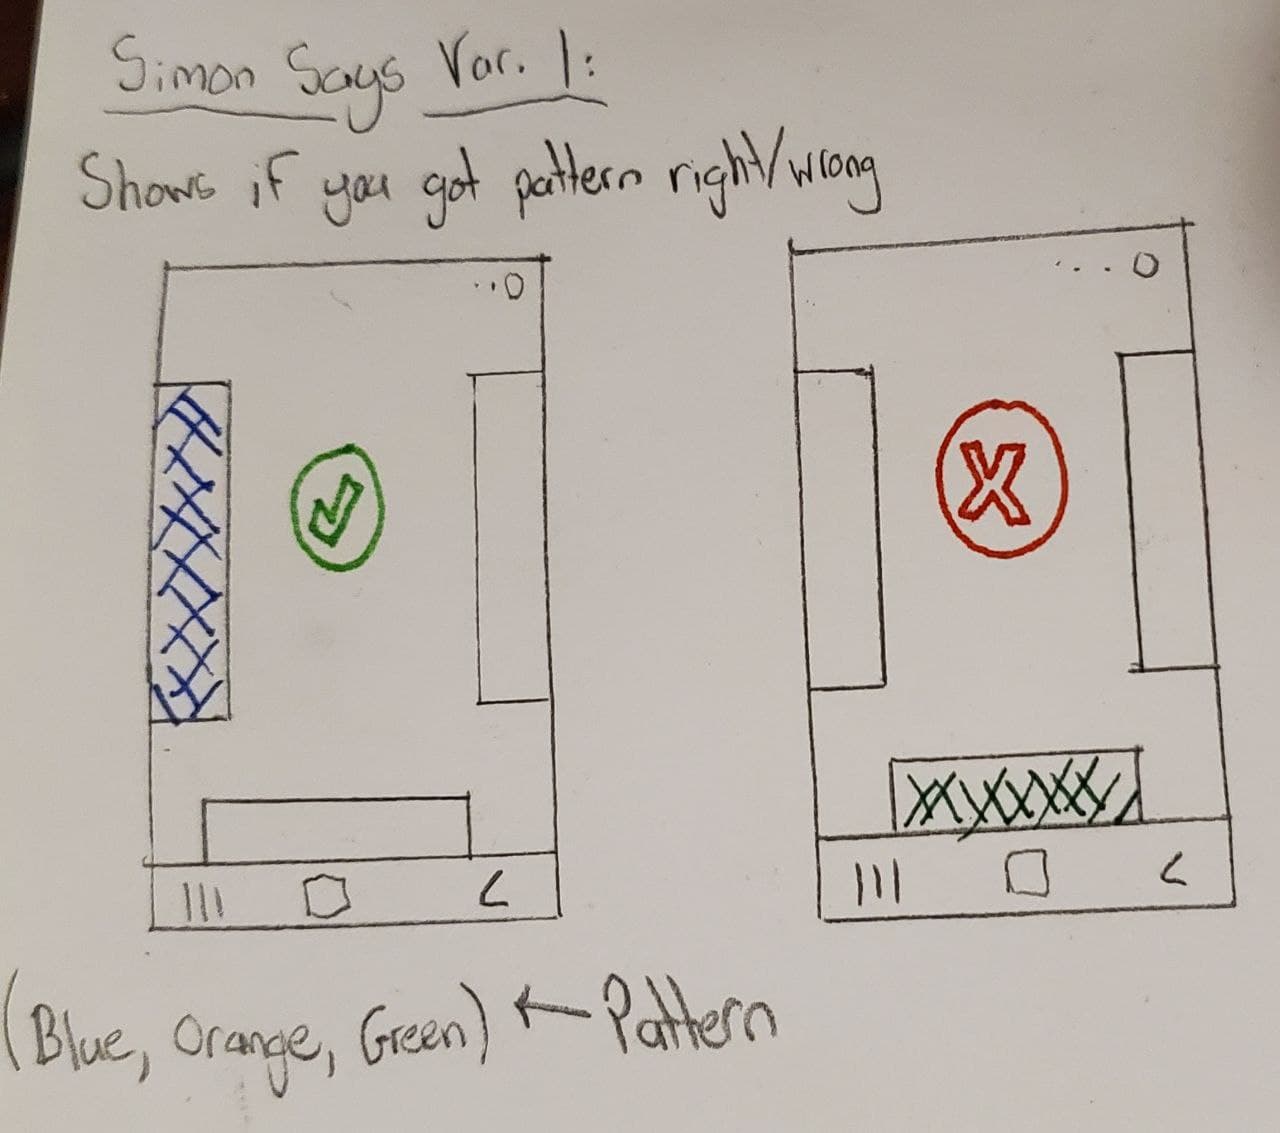 Simon Says Var. 1:
Shows if you got pattern right/wrong
(Blue, Orange, Green) ← Pattern